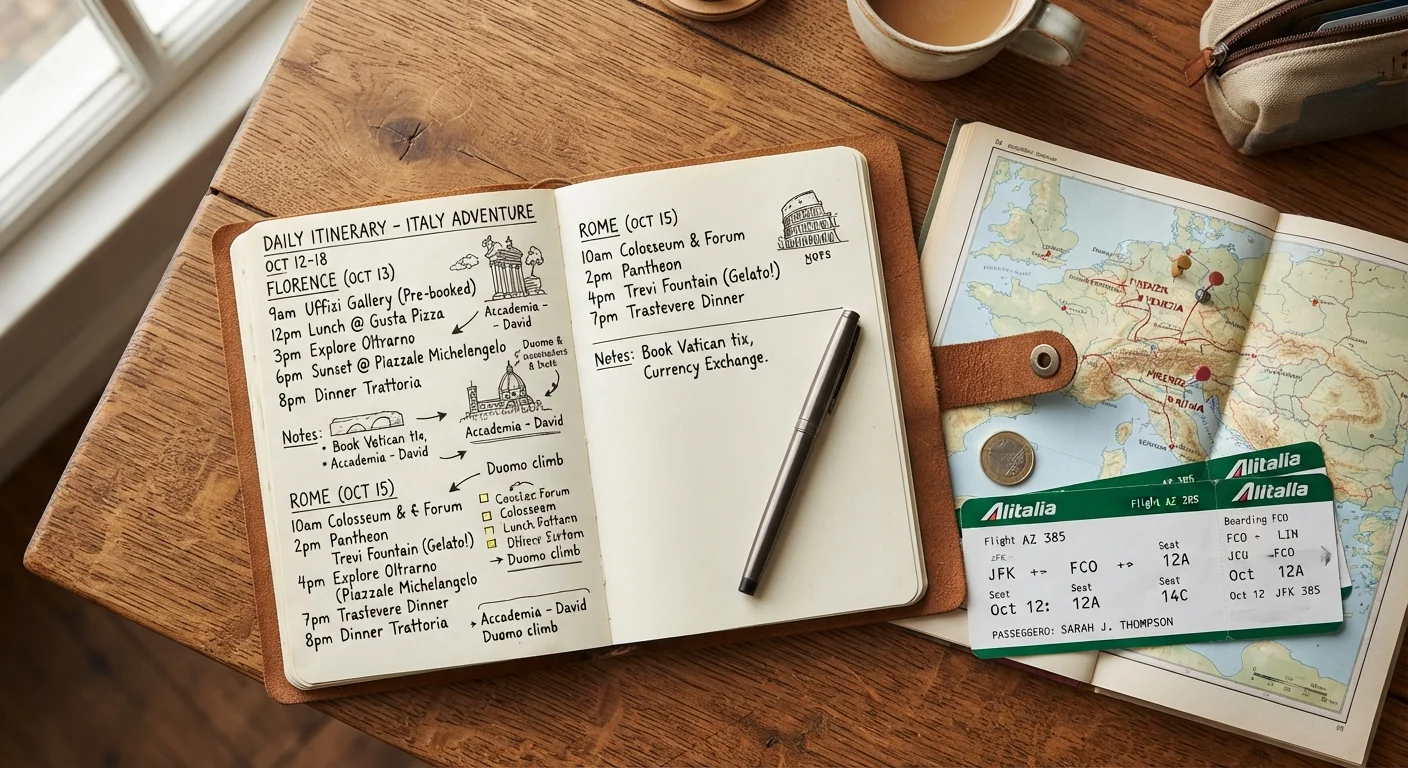 DAILY ITINERARY – ITALY ADVENTURE
OCT 12-18
FLORENCE (OCT 13)
9am Uffizi Gallery (Pre-booked)
12pm Lunch @ Gusta Pizza
3pm Explore Oltrarno
6pm Sunset @ Piazzale Michelangelo
8pm Dinner Trattoria
Accademia –
– David
Duomo &
Accademia – David
Notes:
• Book Vatican
• Accademia – David
Duomo climb
ROME (OCT 15)
10am Colosseum & Forum
2pm Pantheon
Trevi Fountain (Gelato!)
4pm Explore Oltrarno
(Piazzale Michelangelo
7pm Trastevere Dinner
8pm Dinner Trattoria
Forum
Lunch
Duomo climb
Accademia – David
Duomo climb
ROME (OCT 15)
10am Colosseum & Forum
2pm Pantheon
4pm Trevi Fountain (Gelato!)
7pm Trastevere Dinner
Notes: Book Vatican tix,
Currency Exchange.
Alitalia
Alitalia
Flight AZ 2RS
Alitalia
Flight AZ 385
JFK FCO
Seat
12A
Oct 12:
Seat
12A
Seat
14C
PASSEGGERO: SARAH J. THOMPSON
FCO
FCO - LIN
FCO
Oct 12A
Oct 12 JFK 385